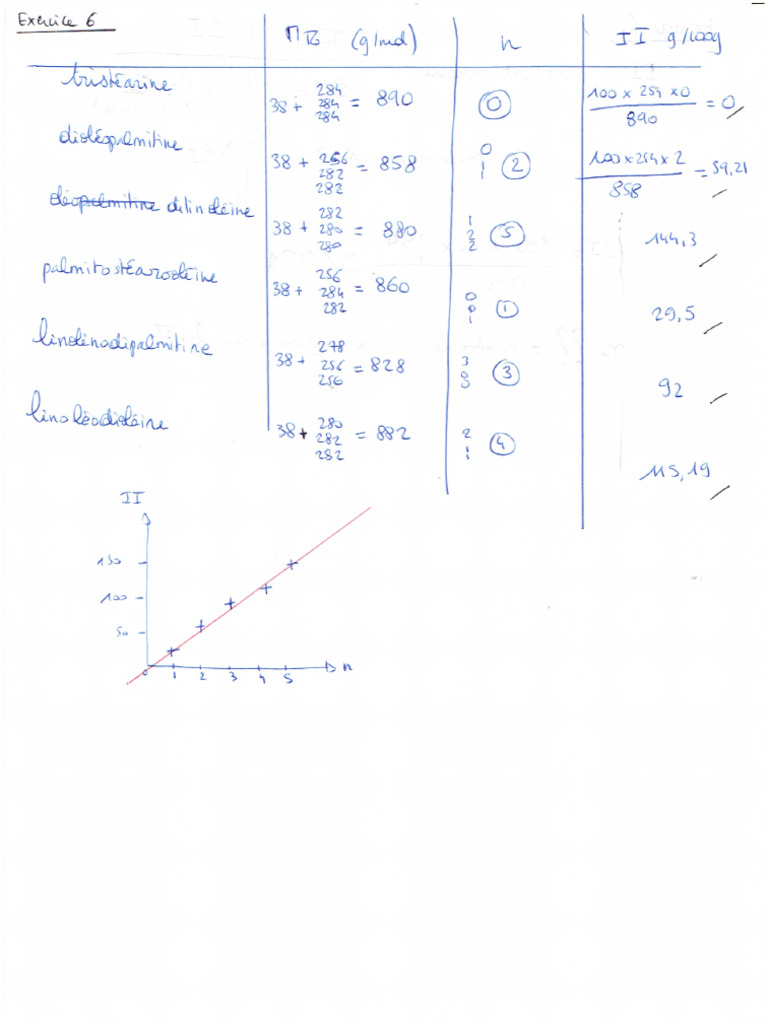 Exercice 6
MB (g/mol) n II g/100g
tristéarine 38 + 284 284 284 = 890 0 100 x 254 x 0 / 890 = 0
dioléopalmitine 38 + 256 282 282 = 858 0 1 2 100 x 254 x 2 / 858 = 59,21
oléopalmitine dilinoléine 38 + 282 280 280 = 880 1 2 2 5 144,3
palmitostéarooléine 38 + 256 284 282 = 860 0 0 1 1 29,5
linolinodipalmitine 38 + 278 256 256 = 828 3 0 0 3 92
linoléodioléine 38 + 280 282 282 = 882 2 1 4 115,19
II
150
100
50
0 1 2 3 4 5 n